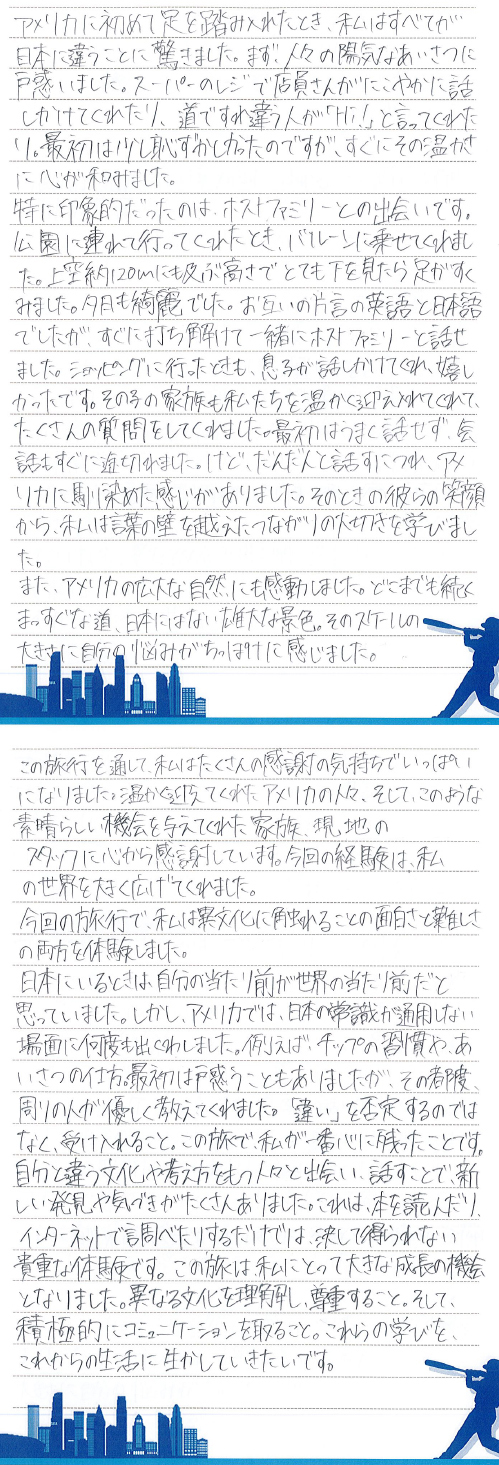 アメリカに初めて足を踏み入れたとき、私はすべてが
日本に違うことに驚きました。まず、人々の陽気なあいさつに
戸惑いました。スーパーのレジで店員さんがにこやかに話
しかけてくれたり、道ですれ違う人が「Hi!」と言ってくれた
り。最初は少し恥ずかしかったのですが、すぐにその温かさ
に心が和みました。
特に印象的だったのは、ホストファミリーとの出会いです。
公園に連れて行ってくれたとき、バルーンに乗せてくれまし
た。上空約120mにも及ぶ高さでとても下を見たら足がすく
みました。夕月も綺麗でした。お互いの片言の英語と日本語
でしたが、すぐに打ち解けて一緒にホストファミリーと話せ
ました。ショッピングに行ったときも、息子が話しかけてくれ、嬉し
かったです。その子の家族も私たちを温かく迎え入れてくれて、
たくさんの質問をしてくれました。最初はうまく話せず、会
話もすぐに途切れました。けど、だんだんと話すにつれ、アメ
リカに馴染めた感じがありました。そのときの彼らの笑顔
から、私は言葉の壁を越えたつながりの大切さを学びまし
た。
また、アメリカの広大な自然にも感動しました。どこまでも続く
まっすぐな道、日本にはない雄大な景色。そのスケールの
大きさに自分の悩みがちっぽけに感じました。
この旅行を通して、私はたくさんの感謝の気持ちでいっぱい
になりました。温かく迎えてくれたアメリカの人々、そして、このような
素晴らしい機会を与えてくれた家族、現地の
スタッフに心から感謝しています。今回の経験は、私
の世界を大きく広げてくれました。
今回の旅行で、私は異文化に触れることの面白さと難しさ
の両方を体験しました。
日本にいるときは、自分の当たり前が世界の当たり前だと
思っていました。しかし、アメリカでは、日本の常識が通用しない
場面に何度も出くわしました。例えば、チップの習慣や、あ
いさつの仕方。最初は戸惑うこともありましたが、その都度、
周りの人が優しく教えてくれました。「違い」を否定するのでは
なく、受け入れること。この旅で、私が一番心に残ったことです。
自分と違う文化や考え方をもつ人々と出会い、話すことで、新
しい発見や気づきがたくさんありました。これは、本を読んだり、
インターネットで調べたりするだけでは、決して得られない
貴重な体験です。この旅は私にとって大きな成長の機会
となりました。異なる文化を理解し、尊重すること。そして、
積極的にコミュニケーションを取ること。これらの学びを、
これからの生活に生かしていきたいです。